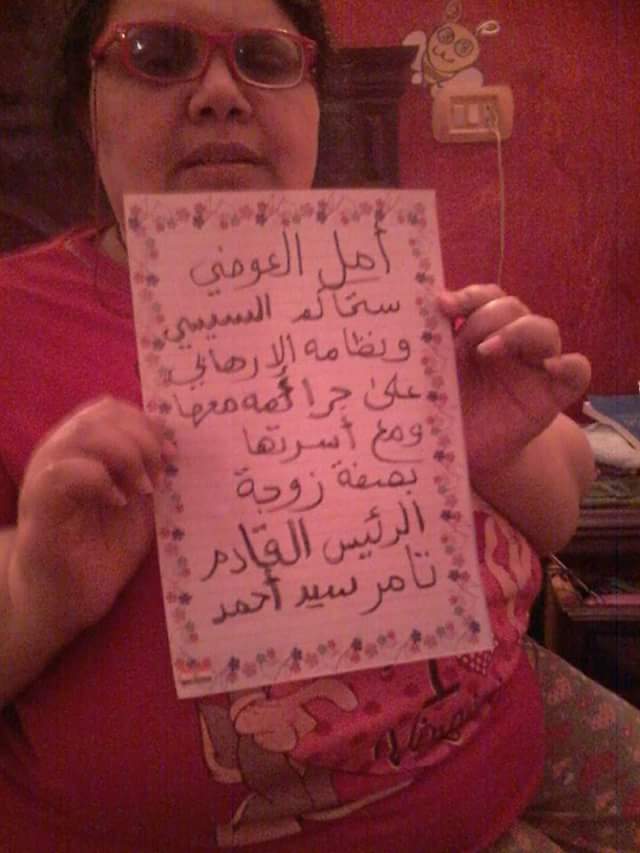 أمل العوضي
ستحاكم السيسي
ونظامه الإرهابي
على جرائمه معها
ومع أسرتها
بصفة زوجة
الرئيس القادم
تامر سيد أحمد